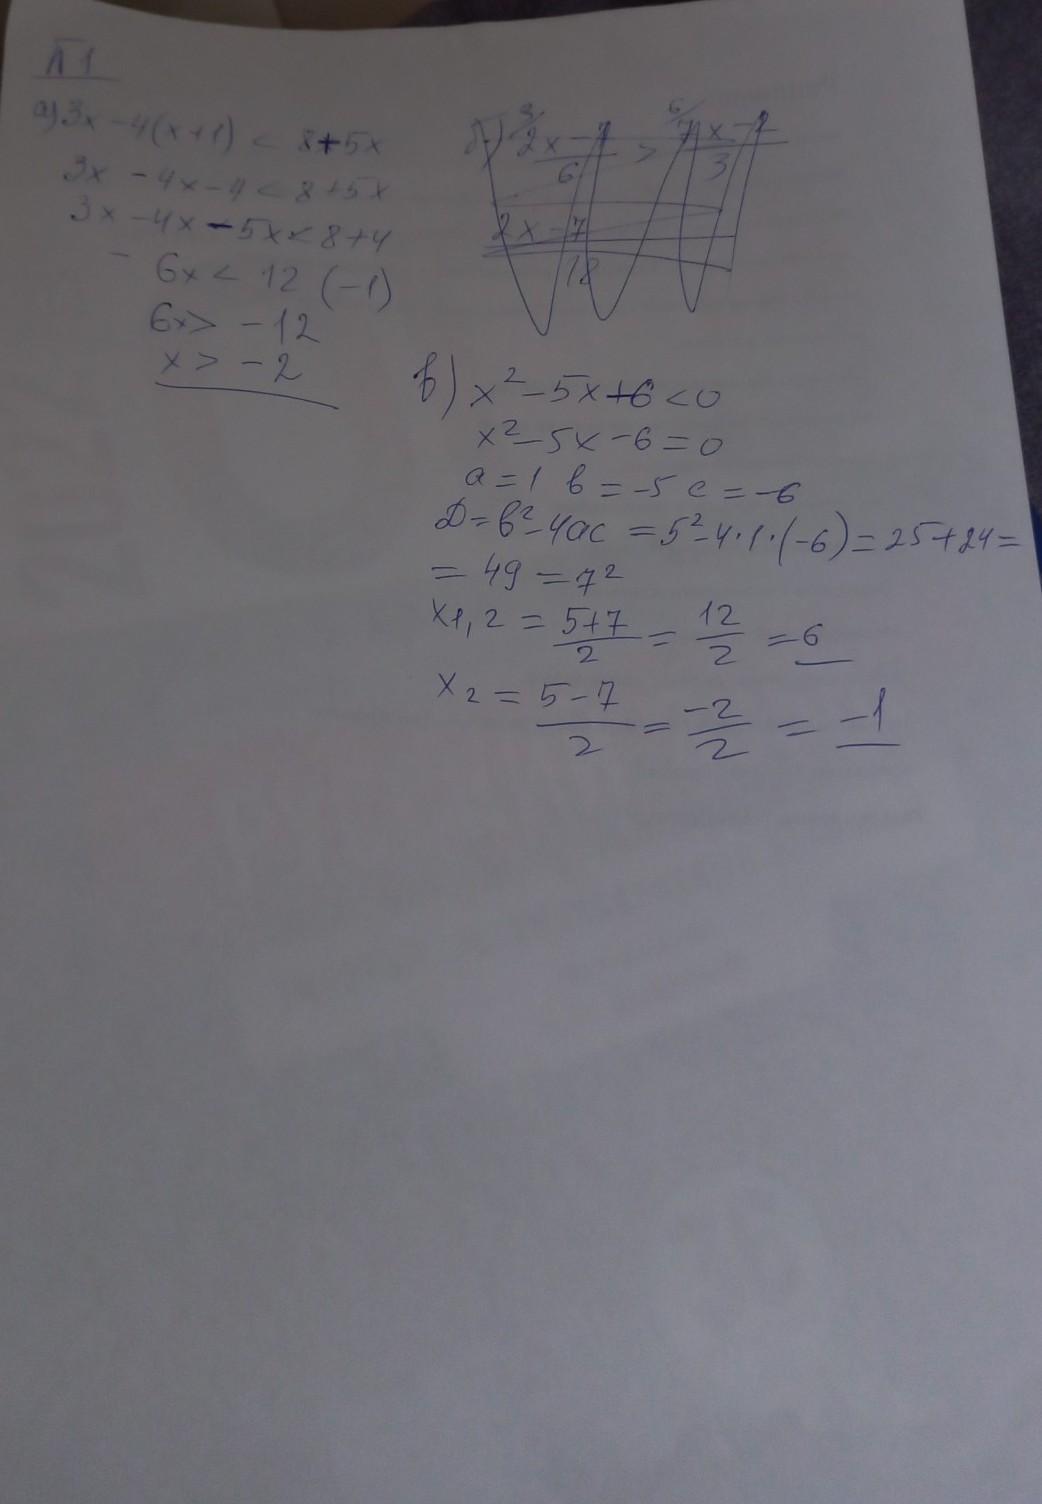 №1
а) 3x - 4(x+1) < 8+5x
3x - 4x - 4 < 8+5x
3x - 4x - 5x < 8+4
- 6x < 12 (-1)
6x > -12
x > -2
в) x² - 5x + 6 < 0
x² - 5x - 6 = 0
a = 1 в = -5 c = -6
D = в² - 4ac = 5² - 4·1·(-6) = 25+24 =
= 49 = 7²
x1,2 = 5+7/2 = 12/2 = 6
x2 = 5-7/2 = -2/2 = -1